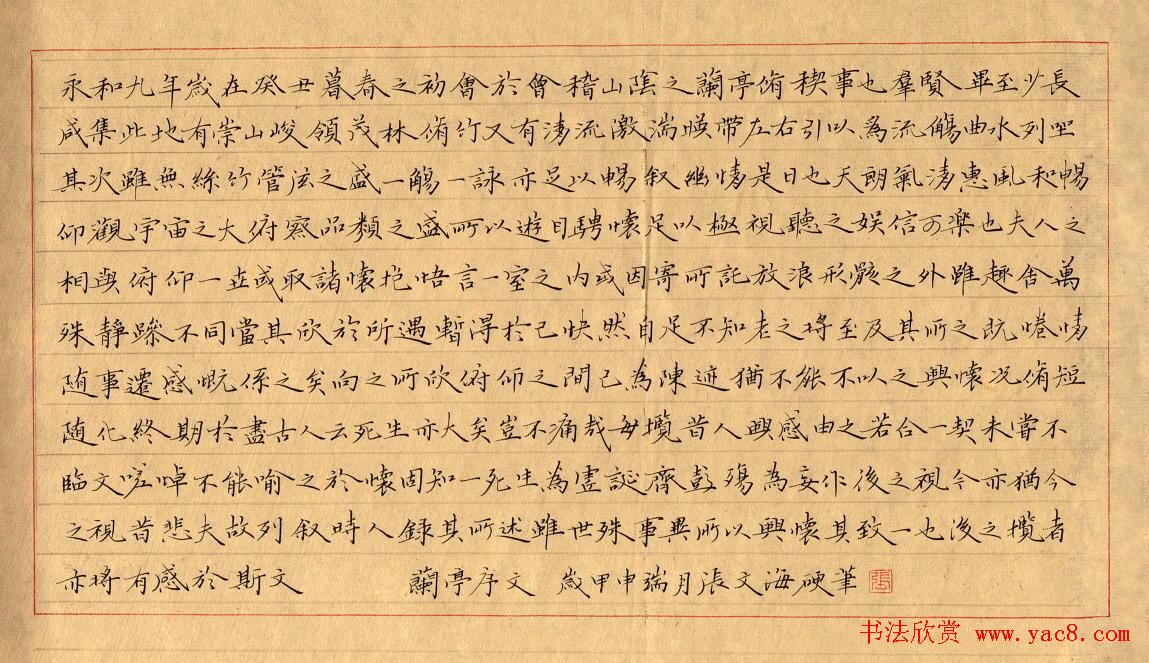 永和九年歲在癸丑暮春之初會於會稽山陰之蘭亭脩稧事也羣賢畢至少長
咸集此地有崇山峻領茂林脩竹又有清流激湍暎帶左右引以為流觴曲水列坐
其次雖無絲竹管弦之盛一觴一詠亦足以暢叙幽情是日也天朗氣清惠風和暢
仰觀宇宙之大俯察品類之盛所以遊目騁懷足以極視聽之娱信可樂也夫人之
相與俯仰一世或取諸懷抱悟言一室之内或因寄所託放浪形骸之外雖趣舍萬
殊静躁不同當其欣於所遇暫得於己快然自足不知老之將至及其所之既惓情
随事遷感慨係之矣向之所欣俯仰之間已為陳迹猶不能不以之興懷況脩短
随化終期於盡古人云死生亦大矣豈不痛哉每攬昔人興感由之若合一契未嘗不
臨文嗟悼不能喻之於懷固知一死生為虛誕齊彭殤為妄作後之視今亦猶今
之視昔悲夫故列叙時人録其所述雖世殊事異所以興懷其致一也後之攬者
亦將有感於斯文 蘭亭序文 歲甲申端月張文海硬筆 張
书法欣赏 www.yac8.com